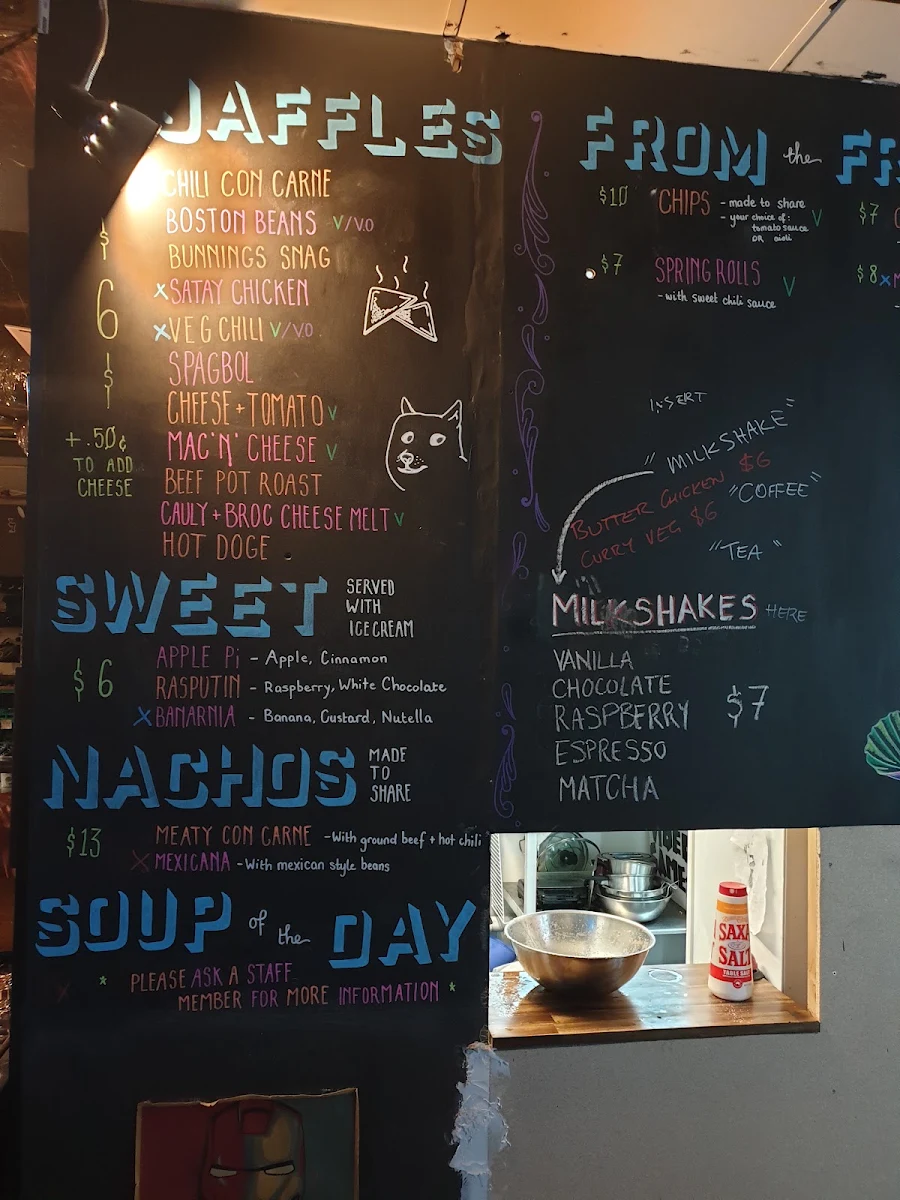 JAFFLES
CHILI CON CARNE
BOSTON BEANS V/V.O
BUNNINGS SNAG
x SATAY CHICKEN
x VEG CHILI V/V.O
SPAGBOL
CHEESE + TOMATO V
MAC 'N' CHEESE V
BEEF POT ROAST
CAULY + BROC CHEESE MELT V
HOT DOGE
$
6
$
+.50¢
TO ADD
CHEESE
SWEET
SERVED
WITH
ICE CREAM
$6
APPLE Pi - Apple, Cinnamon
RASPUTIN - Raspberry, White Chocolate
x BANARNIA - Banana, Custard, Nutella
NACHOS
MADE
TO
SHARE
$13
MEATY CON CARNE - With ground beef + hot chili
x MEXICANA - With mexican style beans
SOUP of the DAY
* PLEASE ASK A STAFF
MEMBER FOR MORE INFORMATION *
FROM the FR
$10 CHIPS - made to share
- your choice of:
tomato sauce
OR aioli
V
$7 SPRING ROLLS V
- with sweet chili sauce
$7
$8 x
INSERT
"MILKSHAKE"
BUTTER CHICKEN $6
"COFFEE"
CURRY VEG $6
"TEA"
MILKSHAKES HERE
VANILLA
CHOCOLATE
RASPBERRY
ESPRESSO
MATCHA
$7
SAXA
SALT
TABLE SALT